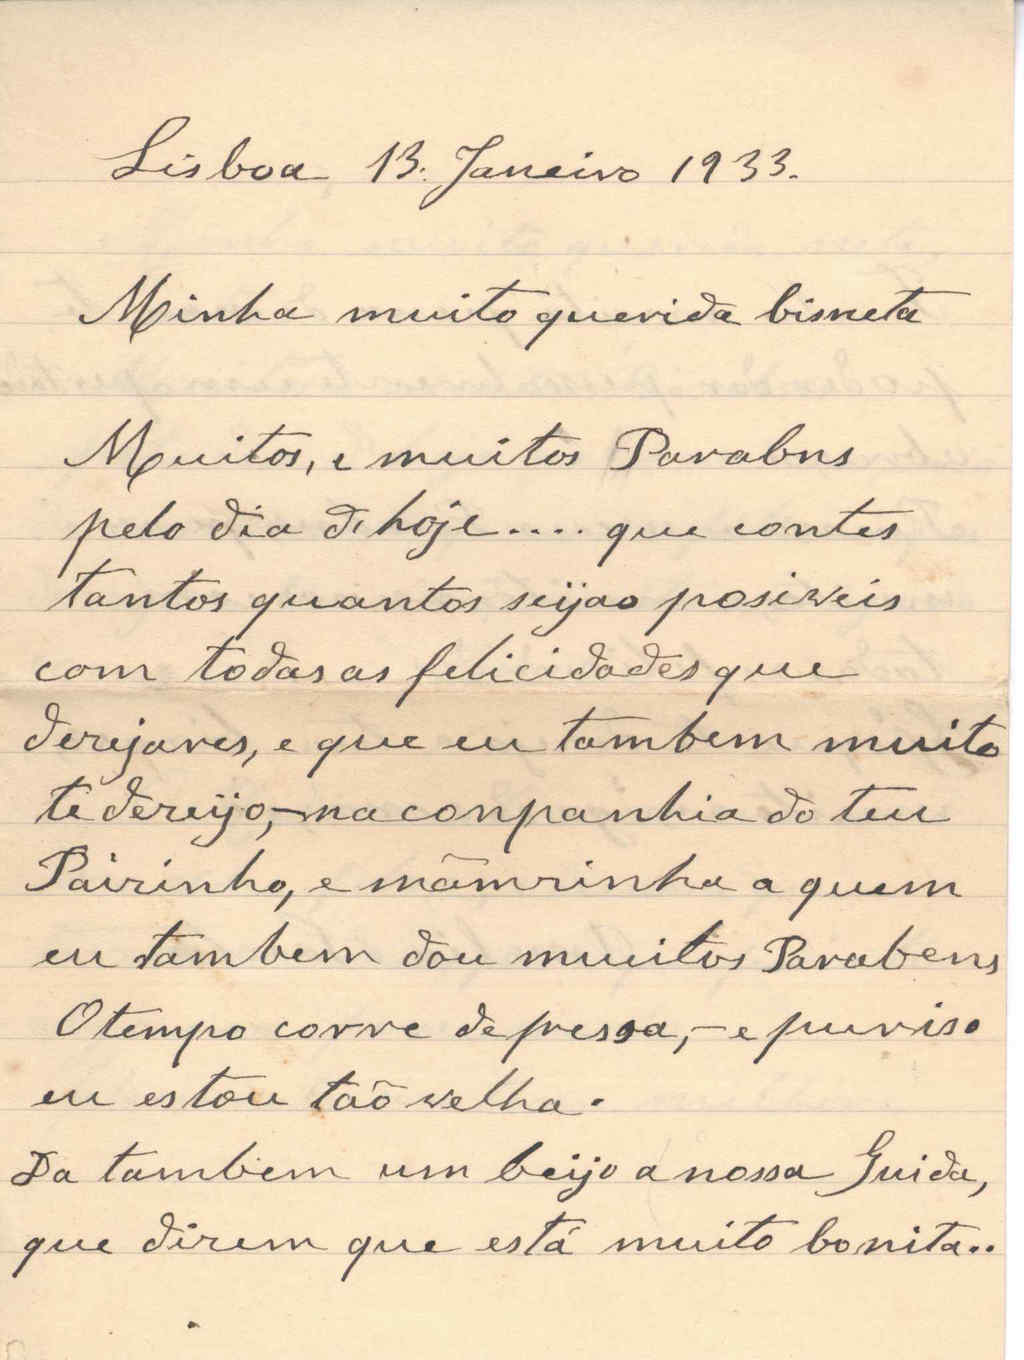 Lisboa 13. Janeiro 1933.
Minha muito querida bisneta
Muitos, e muitos Parabns
pelo dia de hoje.... que contes
tantos quantos seijao posiveis
com todas as felicidades que
dezejares, e que eu tambem muito
te dezeijo,-na conpanhia do teu
Paizinho, e mãmzinha a quem
eu tambem dou muitos Parabens
O tempo corre depressa,- e puriso
eu estou tão velha.
Da tambem um beijo a nossa Guida,
que dizem que está muito bonita..